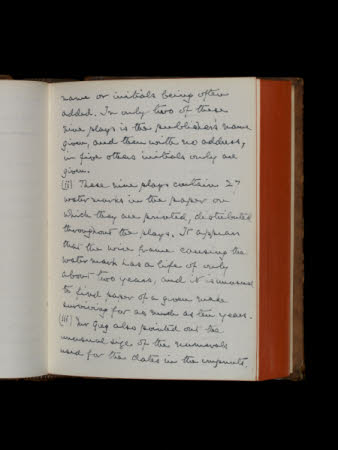 name or initials being often
added. In only two of these
nine plays is the publishers name
given, and then with no address,
in five others initials only are
given.
(ii) These nine plays contain 27
watermarks in the paper on
which they are printed, distributed
throughout the plays. It appears
that the wire frame causing the
watermark has a life of only
about two years, and it is unusual
to find paper of a given make
surviving for as much as ten years.
(iii) Mr Greg also pointed out the
unusual size of the numerals
used for the dates in the imprints,